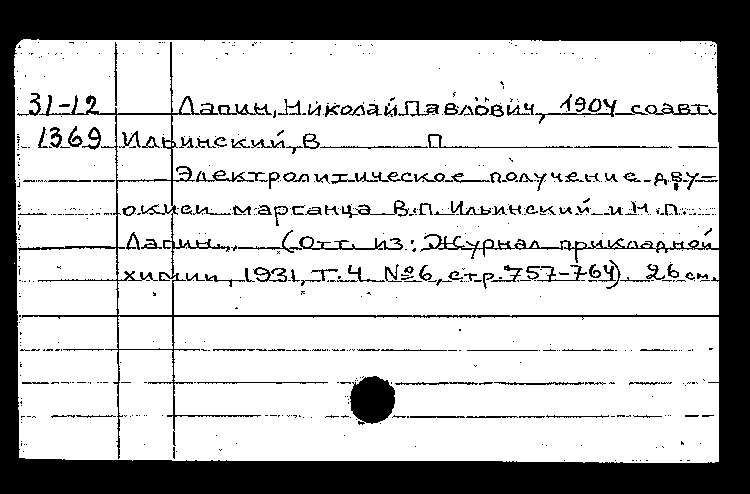 31-12 Лапин, Николай Павлович, 1904 соавт.
1369 Ильинский, В П
Электролитическое получение дву=
окиси марганца В.П. Ильинский и Н.П.
Лапин... (Отт. из: Журнал прикладной
химии, 1931, Т.4 №6, стр. 757-764). 26 см.